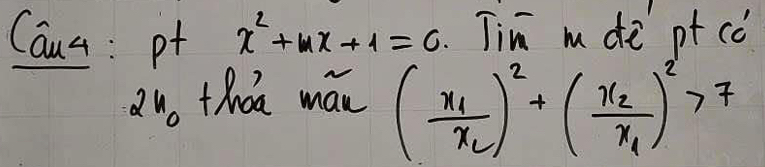 Câu 4 : pt x² + mx + 1 = 0. Tìm m để pt có
2n₀ thỏa mãn (x₁/x₂)² + (x₂/x₁)² > 7